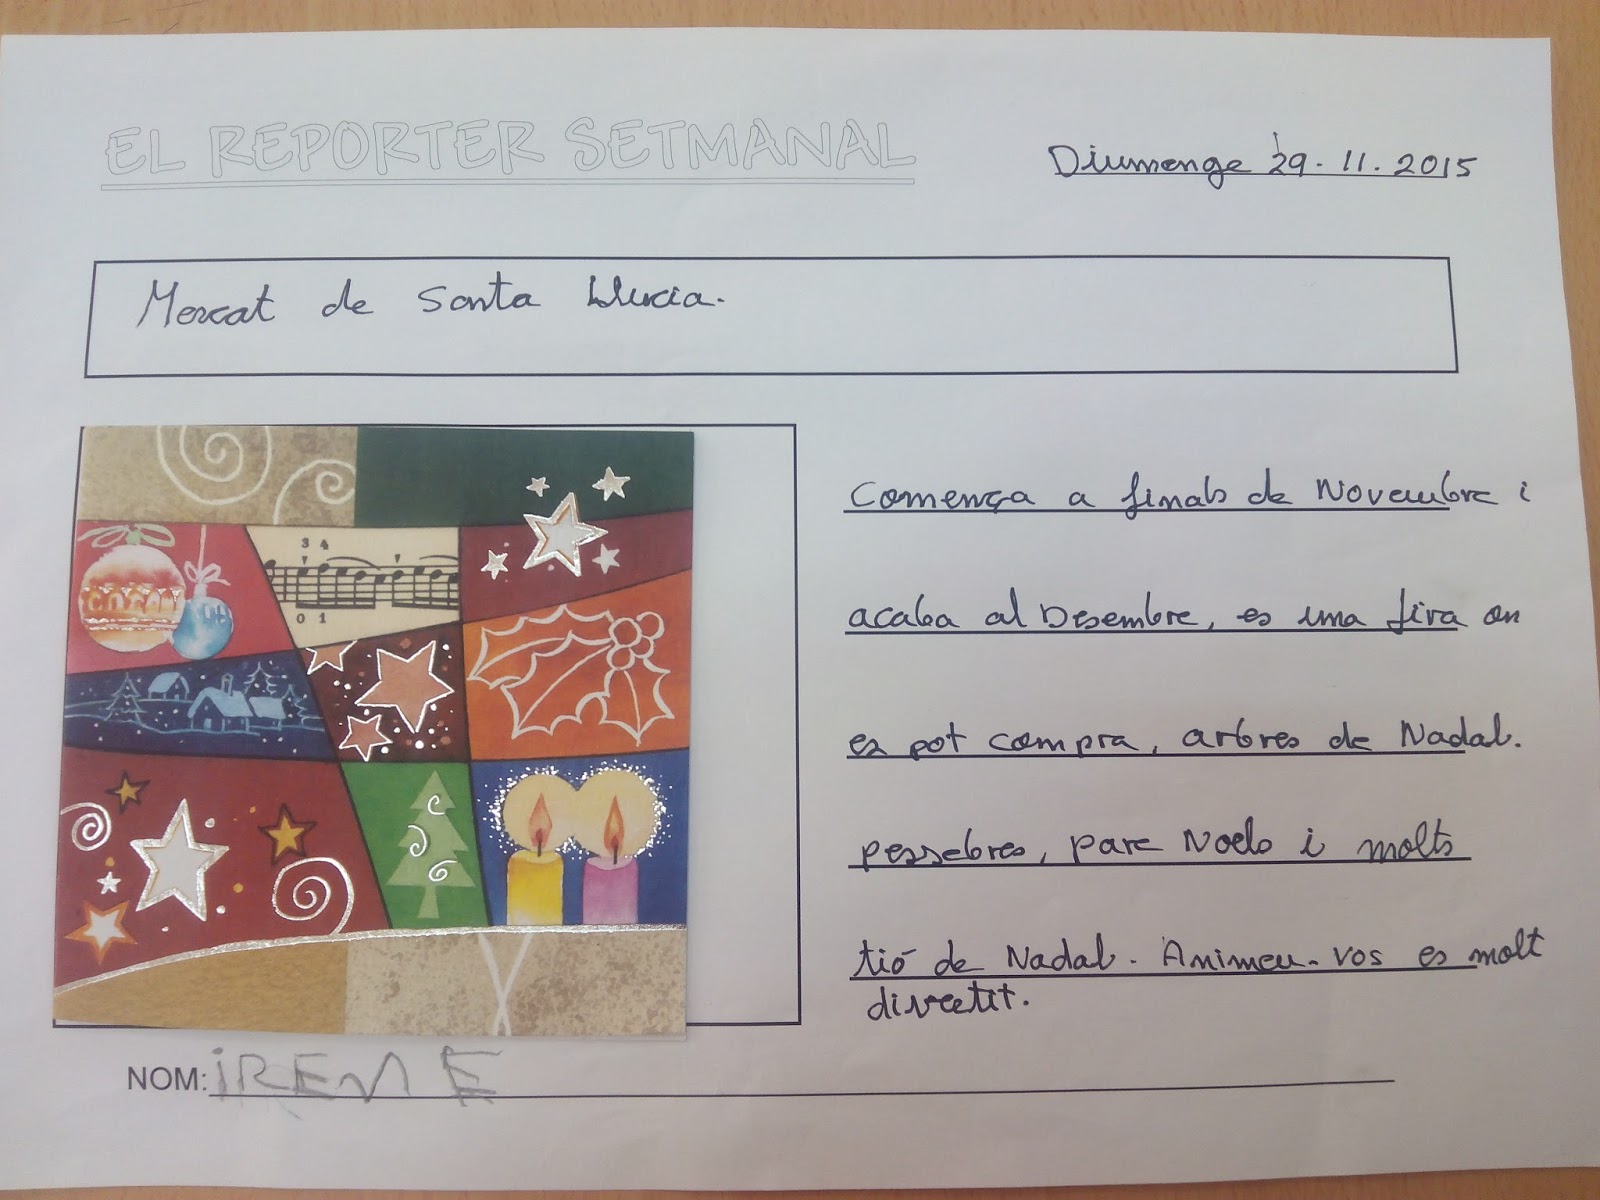 EL REPORTER SETMANAL
Diumenge 29.11.2015
Mercat de Santa Llucia.
3 4
0 1
Comença a finals de Novembre i
acaba al Desembre, es una fira on
es pot compra, arbres de Nadal.
pessebres, pare Noels i molts
tió de Nadal. Animeu-vos es molt
divertit.
NOM: iRENE